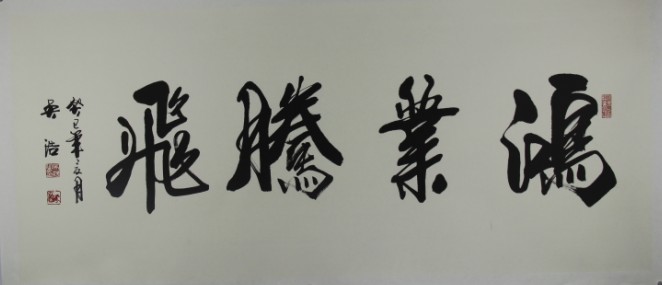 鴻業騰飛
癸巳年五月
浩